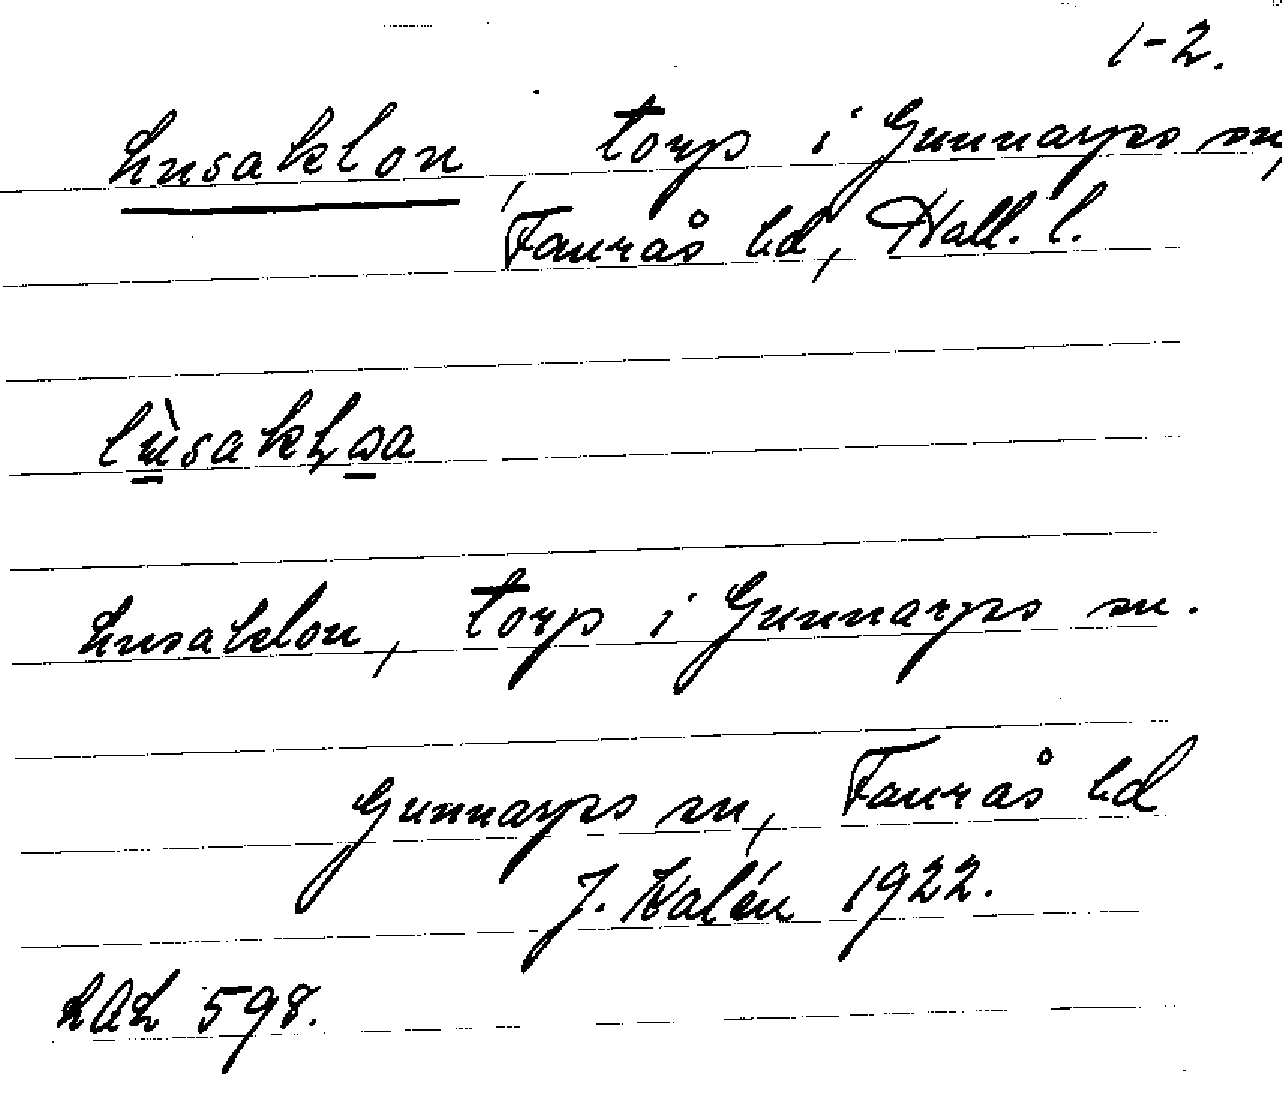 1-2.
Lusaklon, torp i Gunnarps sn,
Faurås hd, Hall. l.
Lusaklon, torp i Gunnarps sn.
Gunnarps sn, Faurås hd
J. Kalén 1922.
LAL 598.